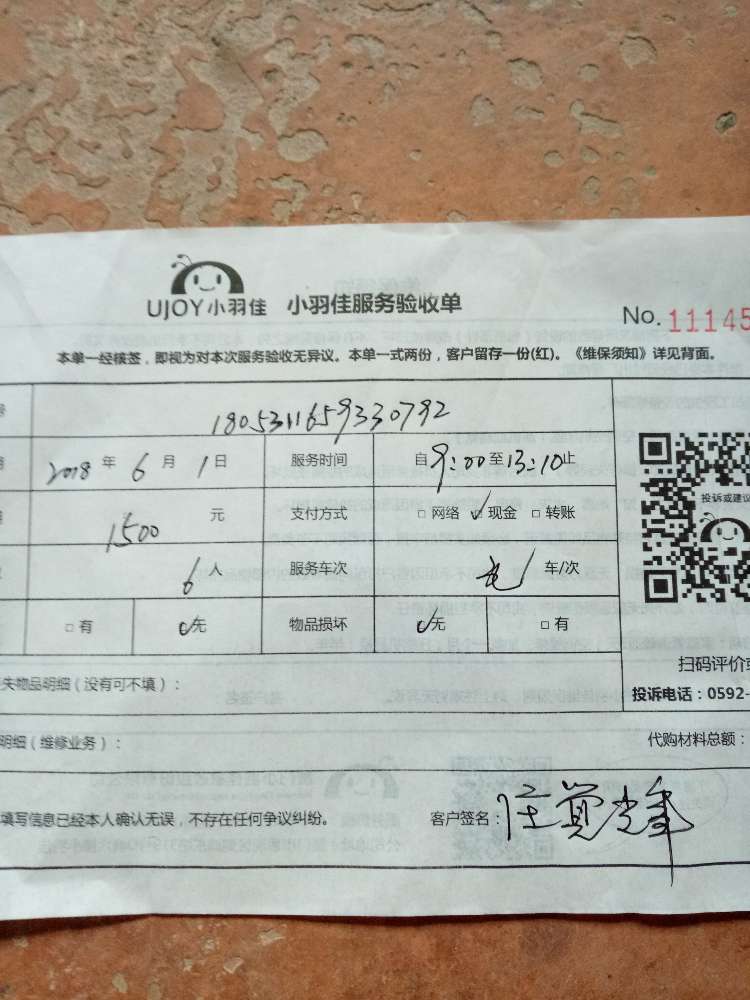 UJOY小羽佳 小羽佳服务验收单
No. 11145
本单一经核签，即视为对本次服务验收无异议。本单一式两份，客户留存一份(红)。《维保须知》详见背面。
1805311659330792
2018 年 6 月 1 日 服务时间 自 9:00 至 13:10 止
1500 元 支付方式 □ 网络 ☑ 现金 □ 转账
投诉或建议
6 人 服务车次 车/次
□ 有 ☑ 无 物品损坏 ☑ 无 □ 有
扫码评价
失物品明细（没有可不填）：
投诉电话：0592-
明细（维修业务）：
代购材料总额：
填写信息已经本人确认无误，不存在任何争议纠纷。 客户签名：